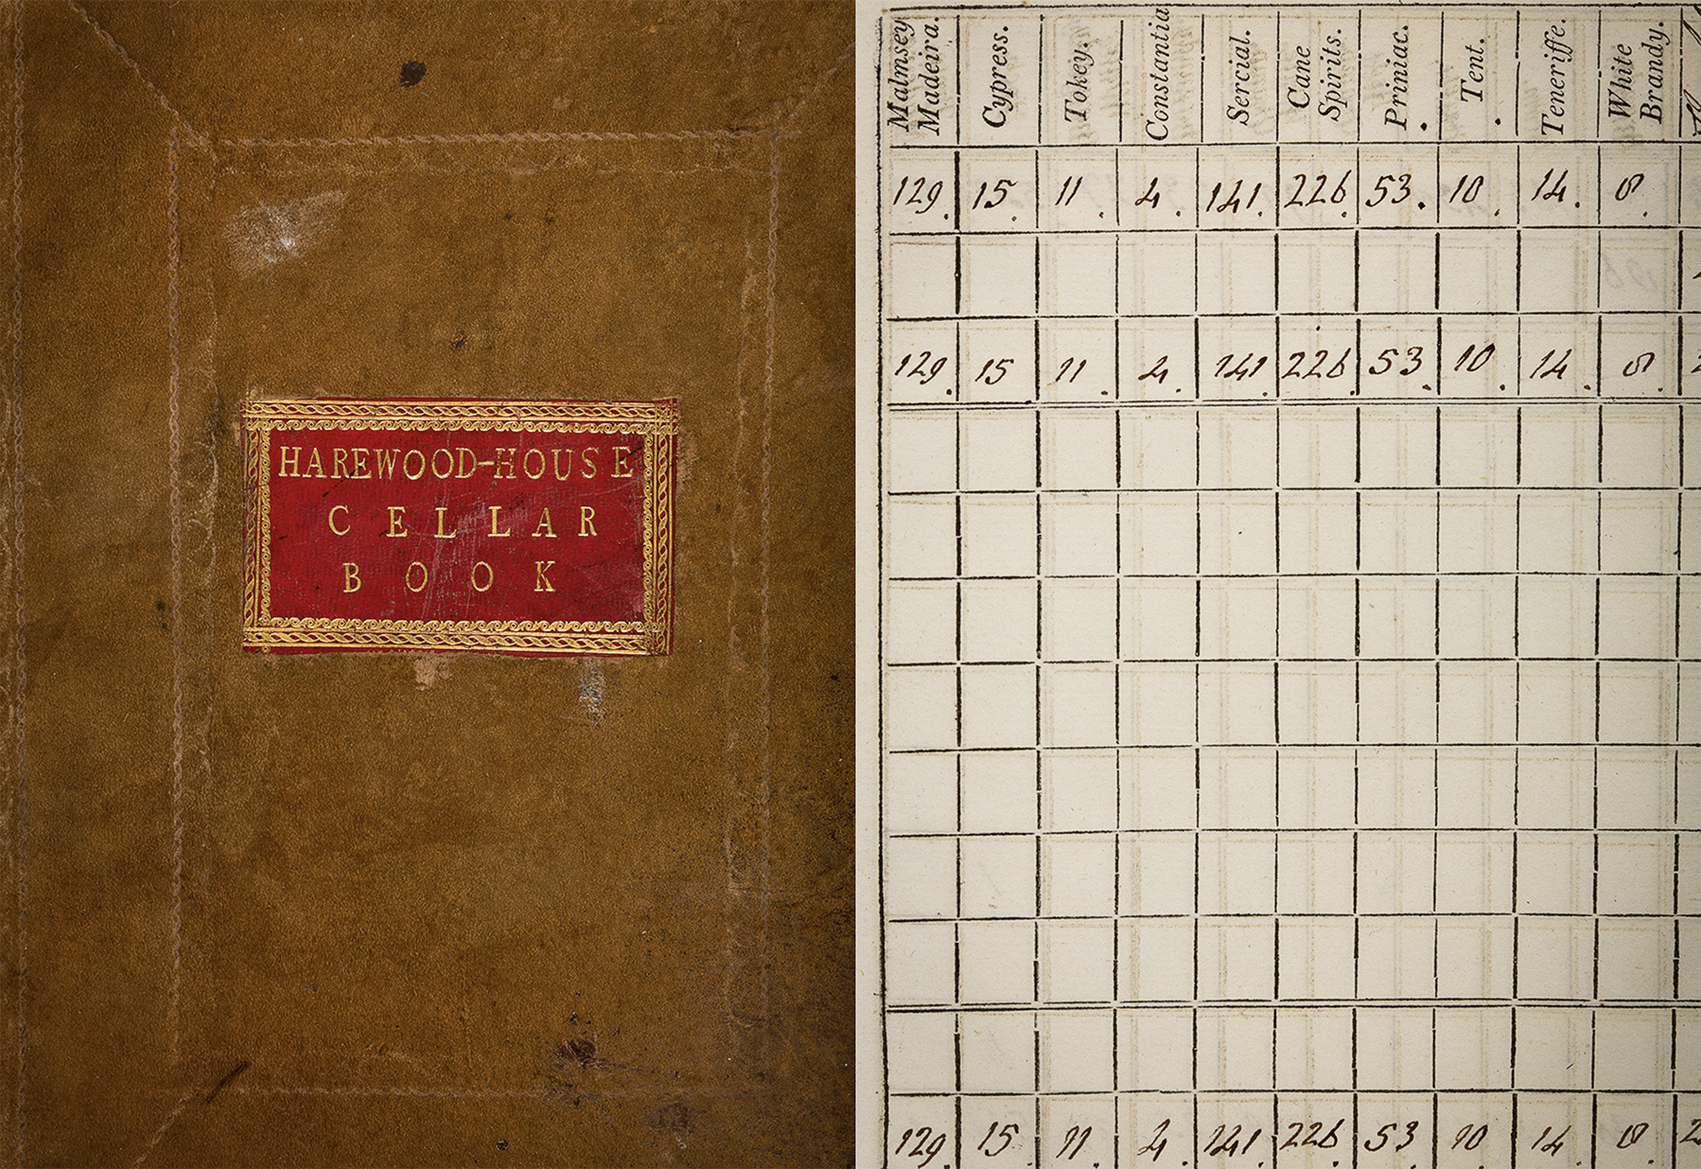 HAREWOOD-HOUSE
CELLAR
BOOK
Malmsey Madeira. Cypress. Tokey. Constantia Sercial. Cane Spirits. Priniac. Tent. Teneriffe. White Brandy.
129. 15. 11. 4. 141. 226. 53. 10. 14. 8.
129. 15 11. 4. 141 226. 53. 10. 14. 8.
129. 15. 11. 4. 141. 226. 53. 10. 14. 8.